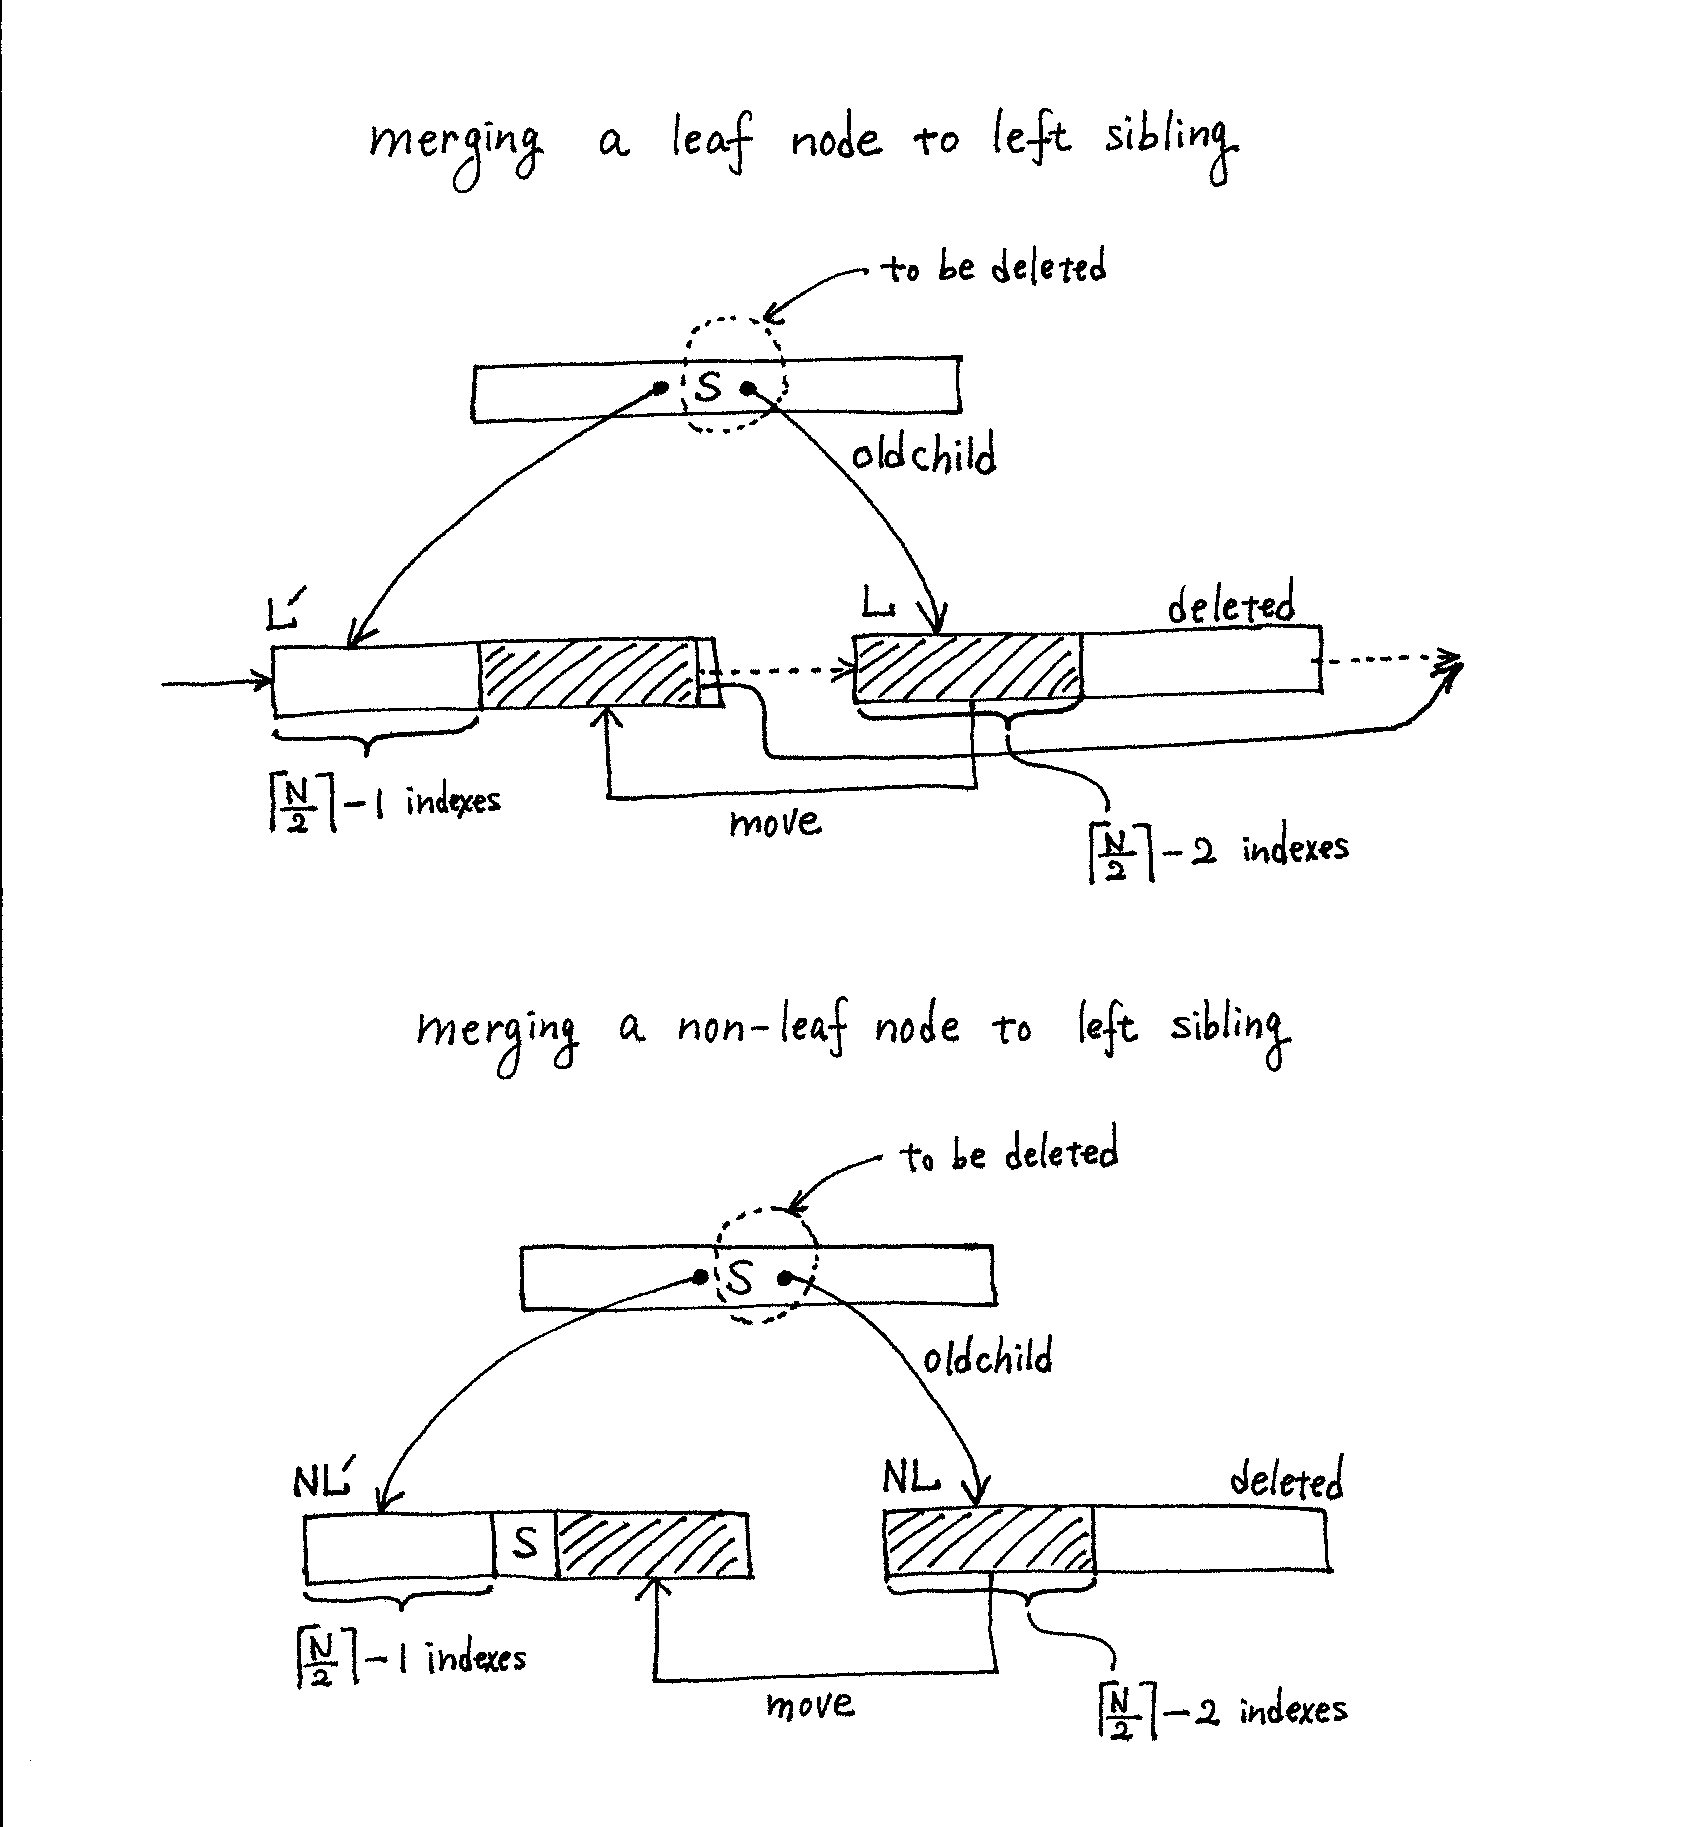 merging a leaf node to left sibling
to be deleted
S
oldchild
L′
L
deleted
⌈N/2⌉-1 indexes
move
⌈N/2⌉-2 indexes
merging a non-leaf node to left sibling
to be deleted
S
oldchild
NL′
NL
deleted
S
⌈N/2⌉-1 indexes
move
⌈N/2⌉-2 indexes